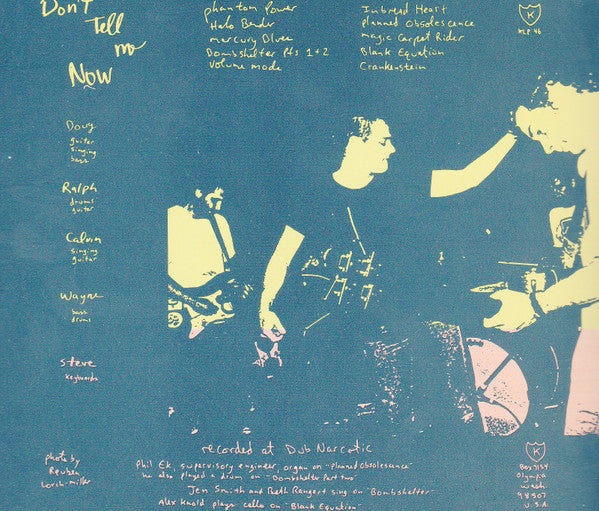 Don't
Tell
me
Now
phantom Power
Halo Bender
mercury Blues
Bombshelter Pts 1+2
Volume mode
Inbread Heart
planned obsolescence
magic Carpet Rider
Blank Equation
Crankenstein
K
KLP 46
Doug
guitar
singing
bass
Ralph
drums
guitar
Calvin
singing
guitar
Wayne
bass
drums
Steve
keyboards
photo by
Reuben
Lorch-miller
recorded at Dub Narcotic
Phil Ek, supervisory engineer, organ on "Planned Obsolescence"
he also played a drum on "Bombshelter Part two"
Jen Smith and Beth Rangert sing on "Bombshelter"
Alex Knold plays cello on "Blank Equation"
K
Box 7154
Olympia
wash
98507
U.S.A